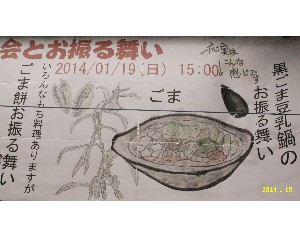 会とお振る舞い
2014/01/19(日) 15:00
一応実は
こんな
感じです
黒ごま豆乳鍋の
お振る舞い
ごま
いろんなもち料理ありますが
ごま餅お振る舞い
2014.1.19